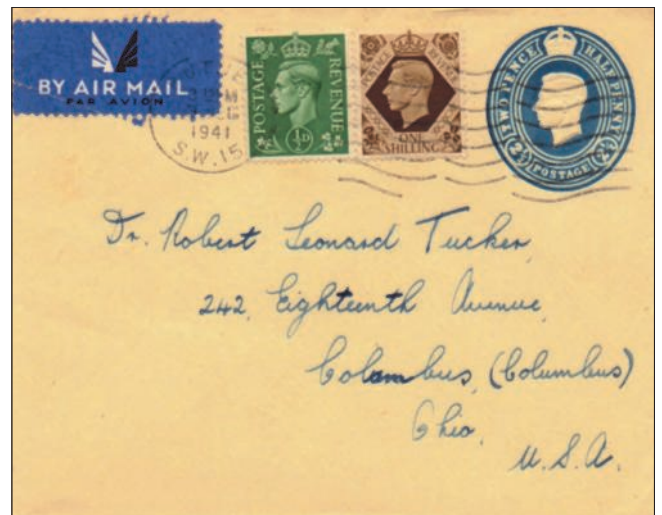 BY AIR MAIL
PAR AVION
1941
S.W.15
POSTAGE REVENUE
½D
POSTAGE REVENUE
ONE SHILLING
TWO PENCE HALF PENNY
2½ POSTAGE 2½
Dr. Robert Leonard Tucker,
242, Eighteenth Avenue,
Columbus, (Columbus)
Ohio,
U.S.A.